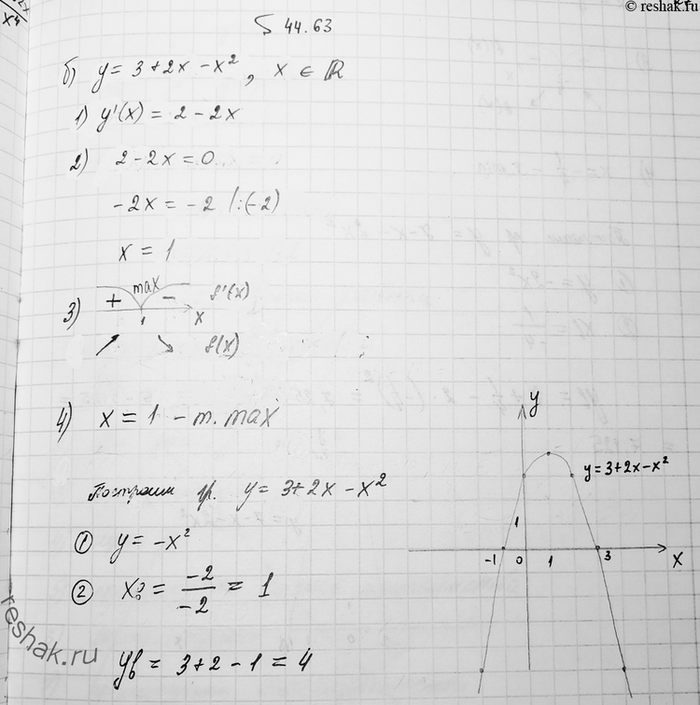 © reshak.ru
x⁴
§ 44.63
б) y = 3 + 2x - x², x ∈ ℝ
1) y'(x) = 2 - 2x
2) 2 - 2x = 0
-2x = -2 |:(-2)
x = 1
3) + max - f'(x)
1 x
f(x)
4) x = 1 - т. max
Построим гр. y = 3 + 2x - x²
① y = -x²
② x₀ = -2/-2 = 1
yв = 3 + 2 - 1 = 4
y
y = 3 + 2x - x²
1
-1 0 1 3 x
reshak.ru